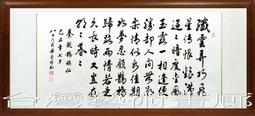 纖雲弄巧飛
星傳恨銀漢迢
迢暗度金風
玉露一相逢便
勝却人間無數
柔情似水佳期
如夢忍顧鵲橋
歸路兩情若是
久長時又豈在
朝朝暮暮
秦觀鵲橋仙
己丑年七夕